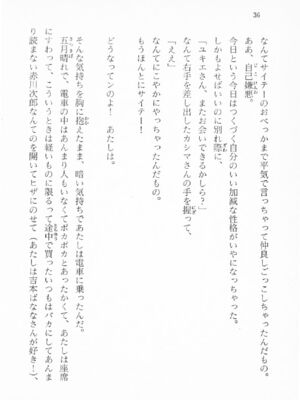 36
なんてサイテーのおべっかまで平気で言っちゃって仲良しごっこしちゃったんだもの。
ああ、自己嫌悪。
今日という今日はつくづく自分のいい加減な性格がいやになっちゃった。
しかもよせばいいのに別れ際に、
「ユキエさん、またお会いできるかしら?」
なんて右手を差し出したカシマさんの手を握って、
「ええ」
なんてにこやかにやっちゃったんだもの。
もうほんとにサイテー!
どうなってンのよ! あたしは。
そんな気持ちを胸に抱えたまま、暗い気持ちであたしは電車に乗ったんだ。
五月晴れで、電車の中はあんまり人もいなくてポカポカとあったかくて、あたしは座席
にすわって、こういうときは軽いものに限るって途中で買ったいつもはバカにしてあんま
り読まない赤川次郎なんてのを開いてヒザにのせて(あたしは吉本ばななさんが好き!)、